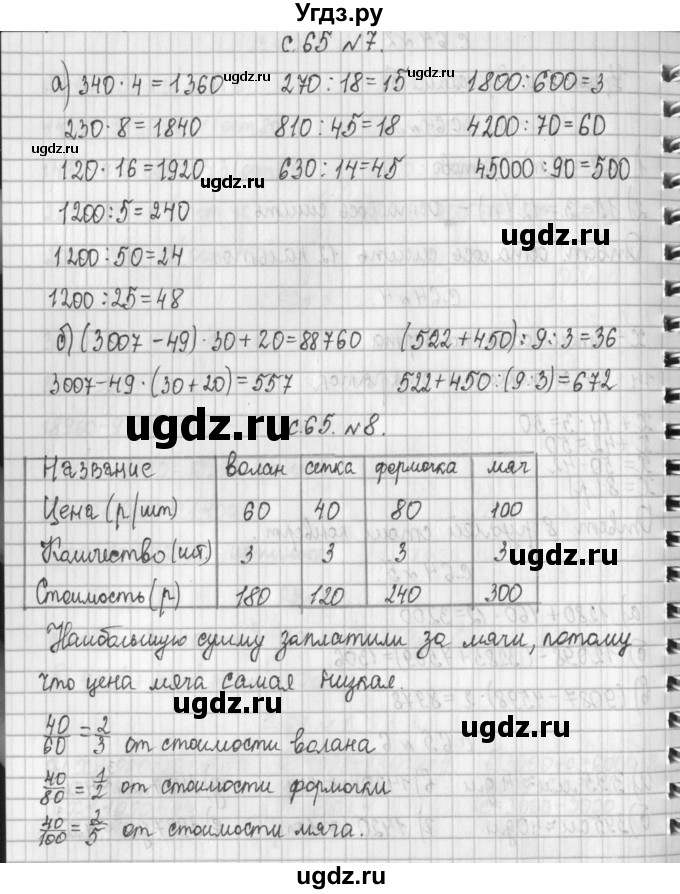 Угдз.ру
с.65 №7.
а) 340·4=1360 270:18=15 1800:600=3
ugdz.ru ugdz.ru ugdz.ru
230·8=1840 810:45=18 4200:70=60
ugdz.ru
120·16=1920 630:14=45 45000:90=500
ugdz.ru
1200:5=240
ugdz.ru
1200:50=24
1200:25=48
б) (3007-49)·30+20=88760 (522+450):9:3=36
3007-49·(30+20)=557 522+450:(9:3)=672
ugdz.ru ugdz.ru
с.65. №8.
Название волан сетка формочка мяч
Цена (р/шт) 60 40 80 100
Количество (шт.) 3 3 3 3
ugdz.ru
Стоимость (р) 180 120 240 300
Наибольшую сумму заплатили за мячи, потому
что цена мяча самая низкая.
ugdz.ru
40/60=2/3 от стоимости волана
40/80=1/2 от стоимости формочки
ugdz.ru
40/100=2/5 от стоимости мяча.
ugdz.ru
ugdz.ru